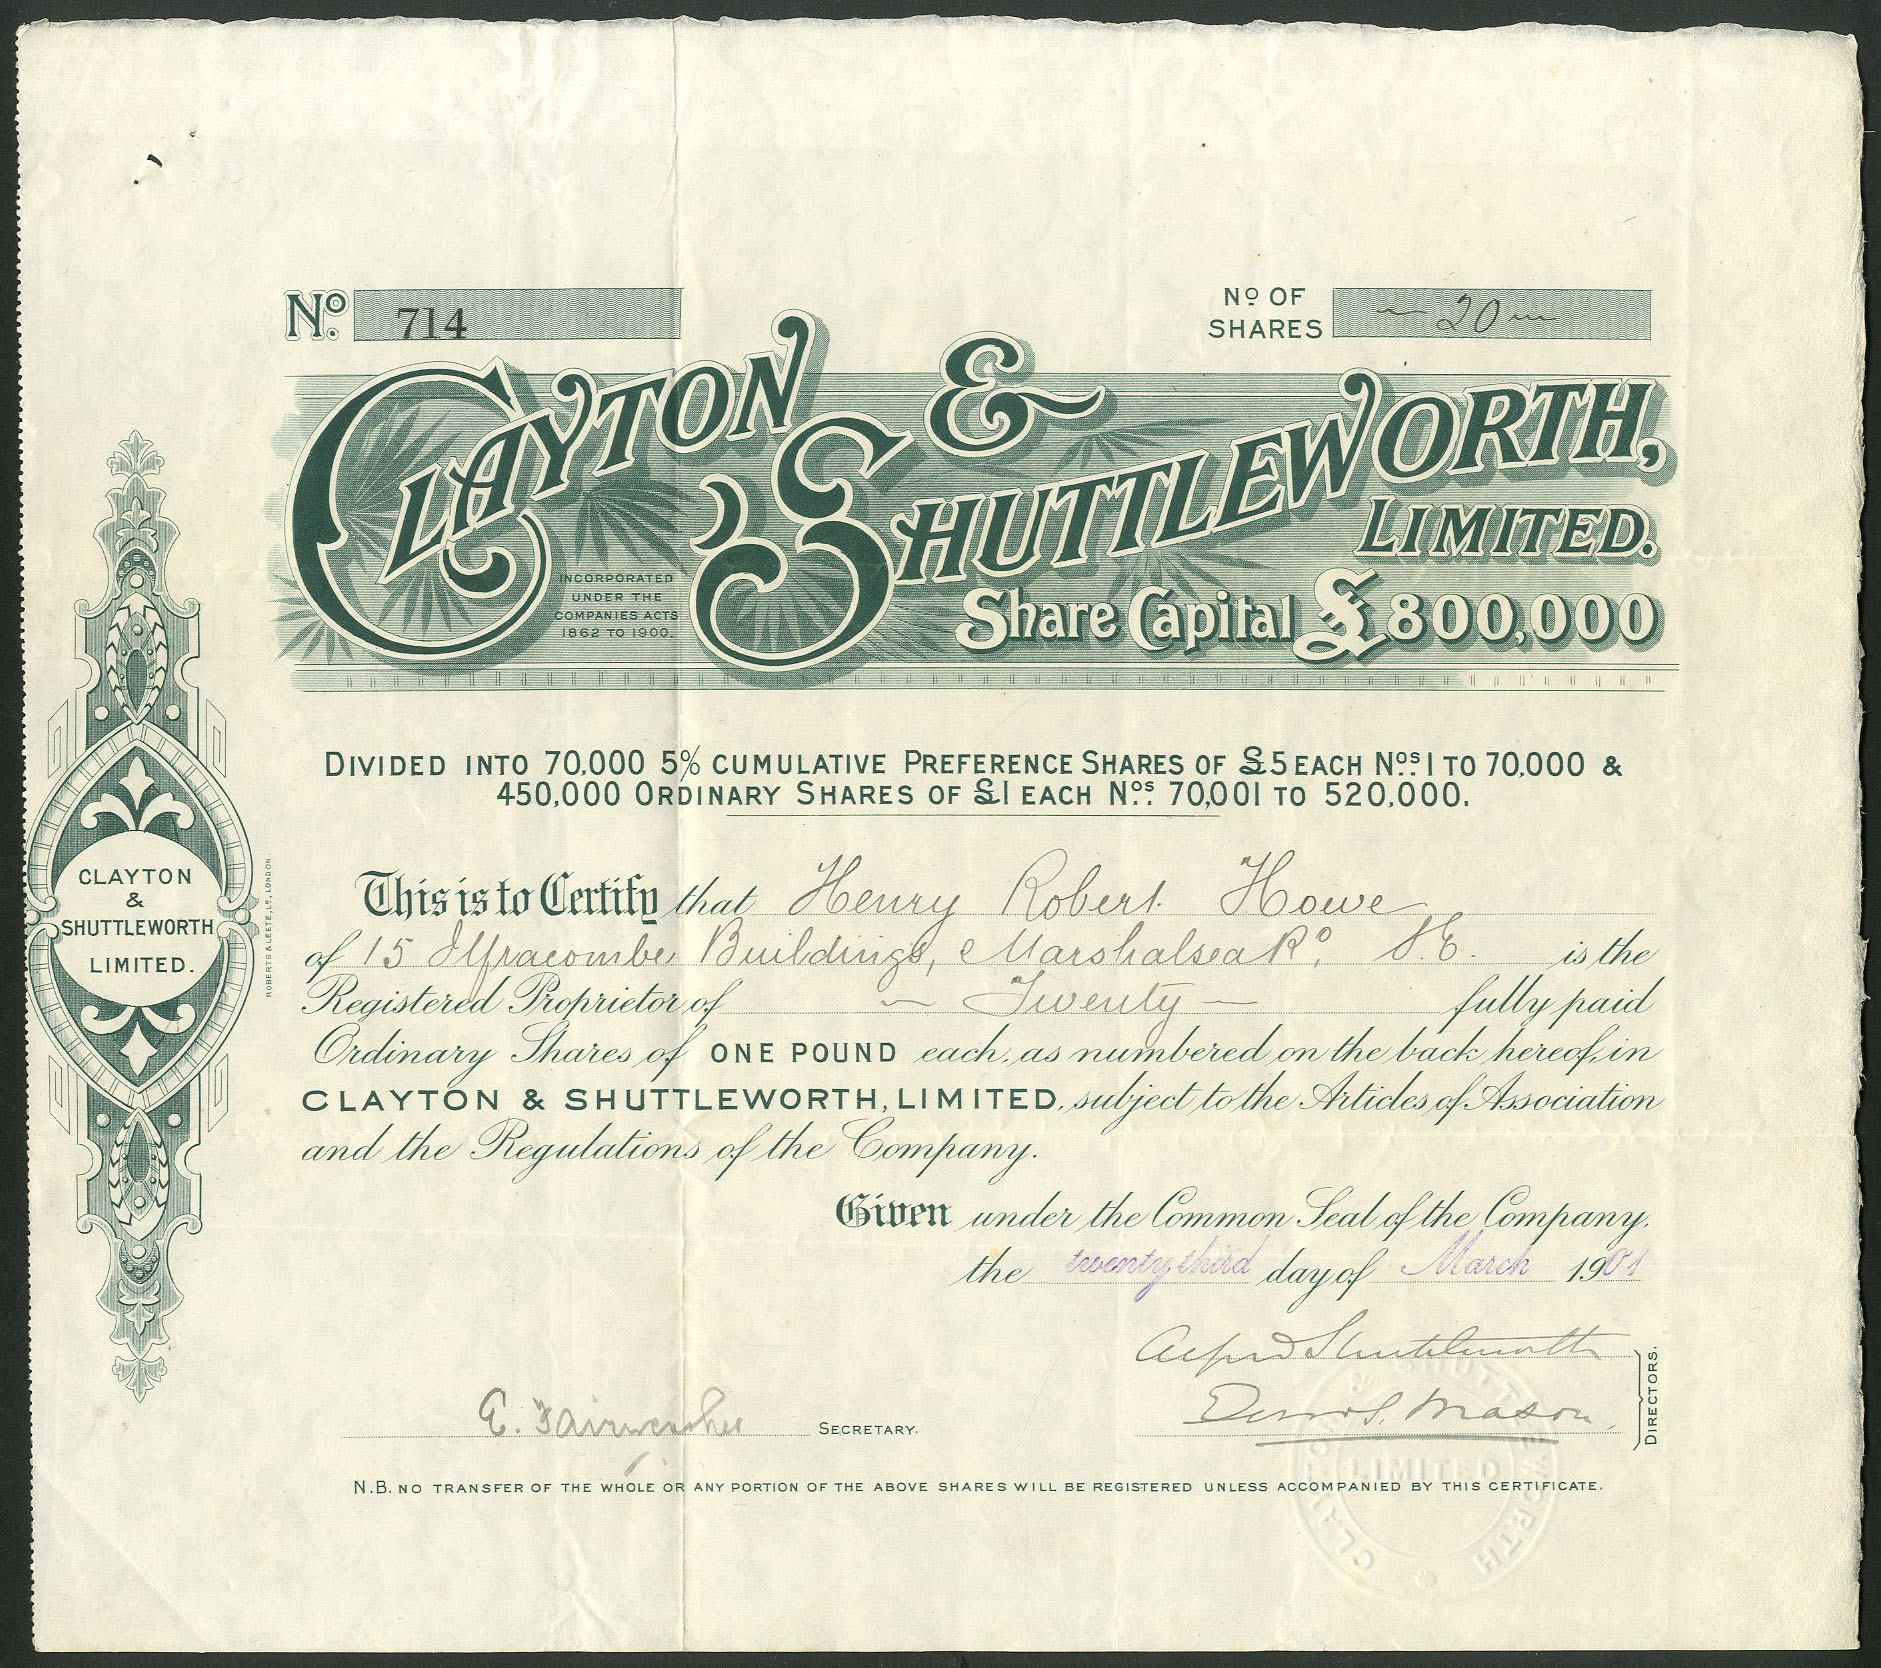 No. 714
No OF SHARES 20
CLAYTON & SHUTTLEWORTH, LIMITED.
INCORPORATED
UNDER THE
COMPANIES ACTS
1862 TO 1900.
Share Capital £800,000
DIVIDED INTO 70,000 5% CUMULATIVE PREFERENCE SHARES OF £5 EACH Nos. 1 TO 70,000 &
450,000 ORDINARY SHARES OF £1 EACH Nos. 70,001 TO 520,000.
This is to Certify that Henry Robert Howe
of 15 Ilfracombe Buildings, Marshalsea Rd, S.E. is the
Registered Proprietor of ~ Twenty — fully paid
Ordinary Shares of ONE POUND each, as numbered on the back hereof, in
CLAYTON & SHUTTLEWORTH, LIMITED, subject to the Articles of Association
and the Regulations of the Company.
Given under the Common Seal of the Company.
the twenty third day of March 1901
Alfred Shuttleworth
E. Fairweather SECRETARY.
Mason
DIRECTORS.
N.B. NO TRANSFER OF THE WHOLE OR ANY PORTION OF THE ABOVE SHARES WILL BE REGISTERED UNLESS ACCOMPANIED BY THIS CERTIFICATE.
CLAYTON
&
SHUTTLEWORTH
LIMITED.
ROBERTS & LEETE, Ld., LONDON.
CLAYTON & SHUTTLEWORTH
LIMITED